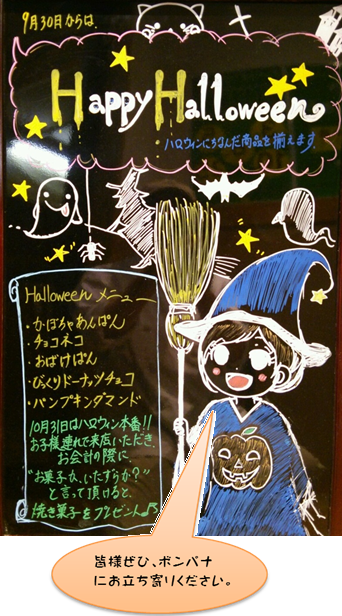 9月30日からは、
Happy Halloween
・ハロウィンにちなんだ商品を揃えます
Halloween メニュー
・かぼちゃあんぱん
・チョコネコ
・おばけぱん
・びっくりドーナッツチョコ
・パンプキンダマンド
10月31日はハロウィン本番!!
お子様連れで来店いただき、
お会計の際に、
"お菓子か、いたずらか?"
と言って頂けると、
焼き菓子をプレゼント♪
皆様ぜひ、ボンパナ
にお立ち寄りください。